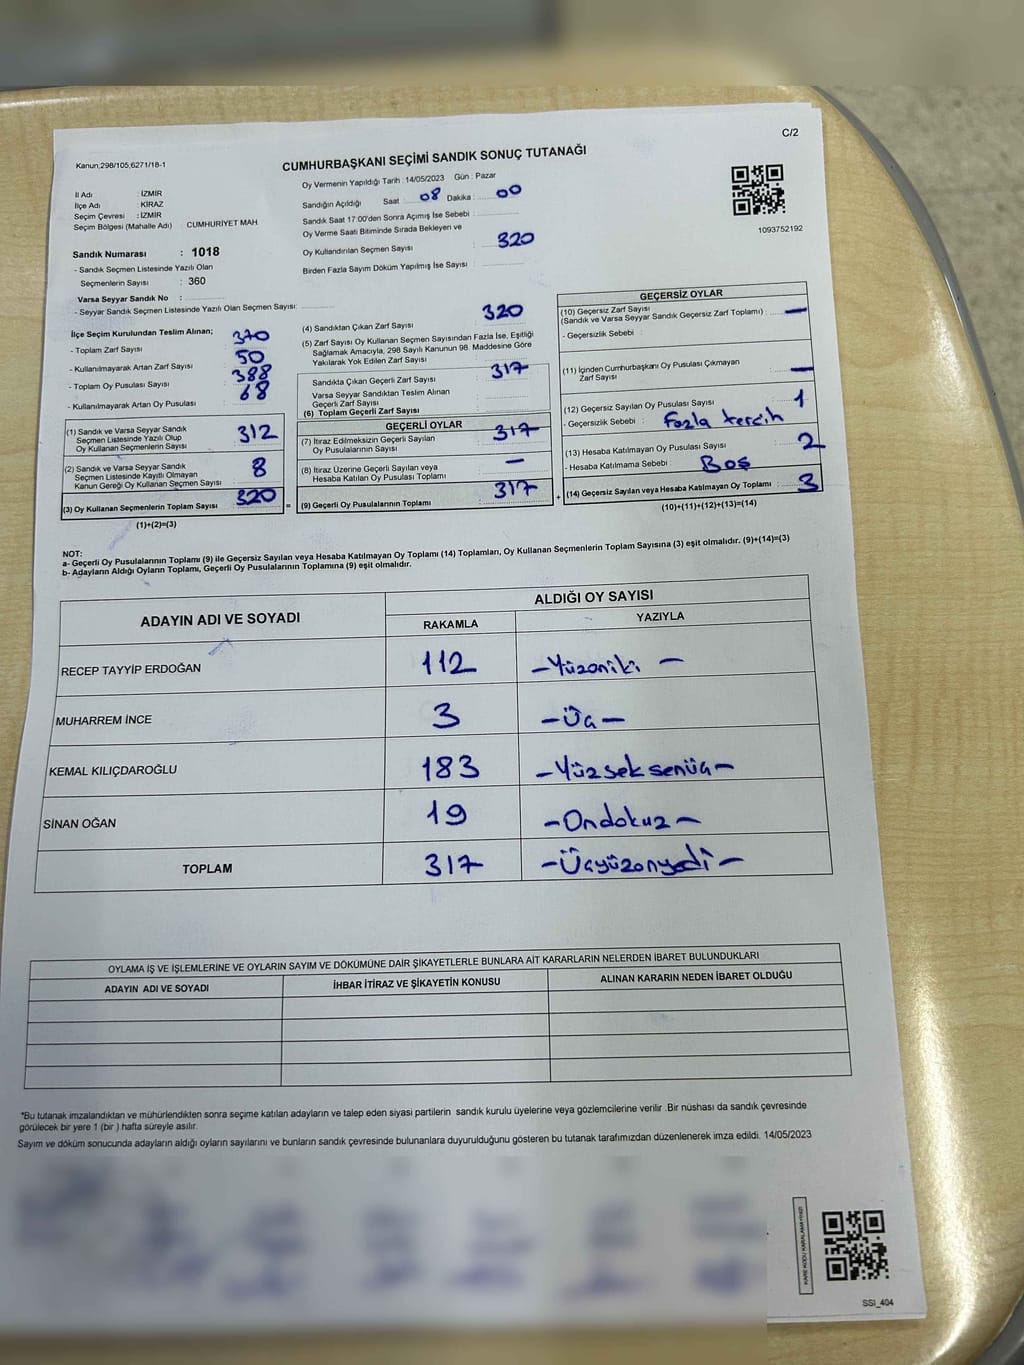 C/2
Kanun;298/105,6271/18-1
CUMHURBAŞKANI SEÇİMİ SANDIK SONUÇ TUTANAĞI
Oy Vermenin Yapıldığı Tarih : 14/05/2023 Gün : Pazar
İl Adı : İZMİR
İlçe Adı : KİRAZ
Seçim Çevresi : İZMİR
Seçim Bölgesi (Mahalle Adı) CUMHURİYET MAH
Sandığın Açıldığı Saat : 08 Dakika : 00
Sandık Saat 17:00'den Sonra Açımış İse Sebebi :
Oy Verme Saati Bitiminde Sırada Bekleyen ve
Oy Kullandırılan Seçmen Sayısı : 320
Birden Fazla Sayım Döküm Yapılmış İse Sayısı :
1093752192
Sandık Numarası : 1018
- Sandık Seçmen Listesinde Yazılı Olan
Seçmenlerin Sayısı : 360
Varsa Seyyar Sandık No :
- Seyyar Sandık Seçmen Listesinde Yazılı Olan Seçmen Sayısı:
İlçe Seçim Kurulundan Teslim Alınan;
- Toplam Zarf Sayısı : 370
- Kullanılmayarak Artan Zarf Sayısı : 50
- Toplam Oy Pusulası Sayısı : 388
- Kullanılmayarak Artan Oy Pusulası : 68
(1) Sandık ve Varsa Seyyar Sandık
Seçmen Listesinde Yazılı Olup
Oy Kullanan Seçmenlerin Sayısı : 312
(2) Sandık ve Varsa Seyyar Sandık
Seçmen Listesinde Kayıtlı Olmayan
Kanun Gereği Oy Kullanan Seçmen Sayısı : 8
(3) Oy Kullanan Seçmenlerin Toplam Sayısı : 320
(1)+(2)=(3)
(4) Sandıktan Çıkan Zarf Sayısı : 320
(5) Zarf Sayısı Oy Kullanan Seçmen Sayısından Fazla İse, Eşitliği
Sağlamak Amacıyla, 298 Sayılı Kanunun 98. Maddesine Göre
Yakılarak Yok Edilen Zarf Sayısı :
Sandıkta Çıkan Geçerli Zarf Sayısı : 317
Varsa Seyyar Sandıktan Teslim Alınan
Geçerli Zarf Sayısı :
(6) Toplam Geçerli Zarf Sayısı :
GEÇERLİ OYLAR
(7) İtiraz Edilmeksizin Geçerli Sayılan
Oy Pusulasının Sayısı : 317
(8) İtiraz Üzerine Geçerli Sayılan veya
Hesaba Katılan Oy Pusulası Toplamı : —
= (9) Geçerli Oy Pusulalarının Toplamı : 317
GEÇERSİZ OYLAR
(10) Geçersiz Zarf Sayısı
(Sandık ve Varsa Seyyar Sandık Geçersiz Zarf Toplamı) : —
- Geçersizlik Sebebi :
(11) İçinden Cumhurbaşkanı Oy Pusulası Çıkmayan
Zarf Sayısı : —
(12) Geçersiz Sayılan Oy Pusulası Sayısı : 1
- Geçersizlik Sebebi : Fazla tercih
(13) Hesaba Katılmayan Oy Pusulası Sayısı : 2
- Hesaba Katılmama Sebebi : Boş
+ (14) Geçersiz Sayılan veya Hesaba Katılmayan Oy Toplamı : 3
(10)+(11)+(12)+(13)=(14)
NOT:
a- Geçerli Oy Pusulalarının Toplamı (9) ile Geçersiz Sayılan veya Hesaba Katılmayan Oy Toplamı (14) Toplamları, Oy Kullanan Seçmenlerin Toplam Sayısına (3) eşit olmalıdır. (9)+(14)=(3)
b- Adayların Aldığı Oyların Toplamı, Geçerli Oy Pusulalarının Toplamına (9) eşit olmalıdır.
ADAYIN ADI VE SOYADI
ALDIĞI OY SAYISI
RAKAMLA YAZIYLA
RECEP TAYYİP ERDOĞAN 112 –Yüzoniki –
MUHARREM İNCE 3 –Üç–
KEMAL KILIÇDAROĞLU 183 –Yüzseksenüç–
SİNAN OĞAN 19 –Ondokuz–
TOPLAM 317 –Üçyüzonyedi–
OYLAMA İŞ VE İŞLEMLERİNE VE OYLARIN SAYIM VE DÖKÜMÜNE DAİR ŞİKAYETLERLE BUNLARA AİT KARARLARIN NELERDEN İBARET BULUNDUKLARI
ADAYIN ADI VE SOYADI İHBAR İTİRAZ VE ŞİKAYETİN KONUSU ALINAN KARARIN NEDEN İBARET OLDUĞU
*Bu tutanak imzalandıktan ve mühürlendikten sonra seçime katılan adayların ve talep eden siyasi partilerin sandık kurulu üyelerine veya gözlemcilerine verilir .Bir nüshası da sandık çevresinde
görülecek bir yere 1 (bir ) hafta süreyle asılır.
Sayım ve döküm sonucunda adayların aldığı oyların sayılarını ve bunların sandık çevresinde bulunanlara duyurulduğunu gösteren bu tutanak tarafımızdan düzenlenerek imza edildi. 14/05/2023
KARE KODU KARALAMAYINIZ!
SSI_404